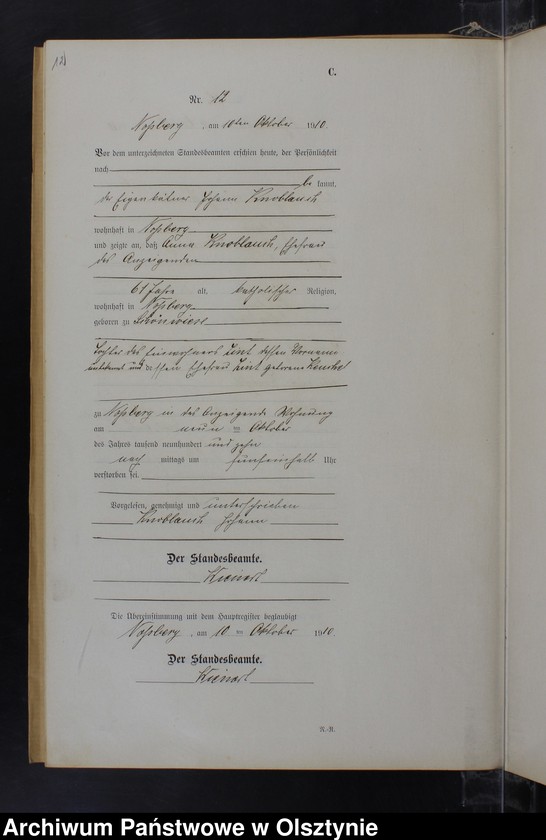 12
C.
Nr. 12
Noßberg, am 10ten Oktober 1910.
Vor dem unterzeichneten Standesbeamten erschien heute, der Persönlichkeit
nach
be kannt,
der Eigenkätner Johann Knoblauch
wohnhaft in Noßberg
und zeigte an, daß Anna Knoblauch, Ehefrau
des Anzeigenden
61 Jahre alt, katholischer Religion,
wohnhaft in Noßberg
geboren zu Schönwiese
Tochter des Einwohners Lint dessen Vorname
unbekannt und dessen Ehefrau Lint geborene
zu Noßberg in des Anzeigende Wohnung
am neun ten Oktober
des Jahres tausend neunhundert und zehn
nach mittags um fünfeinhalb Uhr
verstorben sei.
Vorgelesen, genehmigt und unterschrieben
Knoblauch Johann
Der Standesbeamte.
Die Übereinstimmung mit dem Hauptregister beglaubigt
Noßberg, am 10 ten Oktober 1910.
Der Standesbeamte.
N.-R.
Archiwum Państwowe w Olsztynie